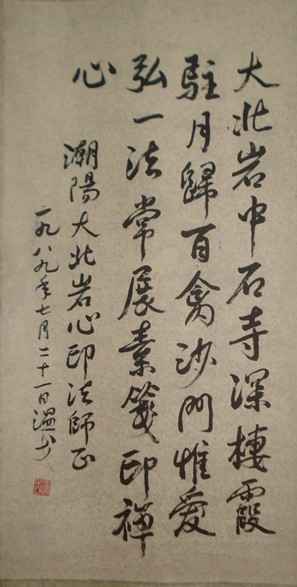 大北岩中石寺深棲霞
駐月歸百禽沙門惟愛
弘一法常展素箋印禪
心
潮陽大北岩心印法師正
一九八九年七月二十一日溫